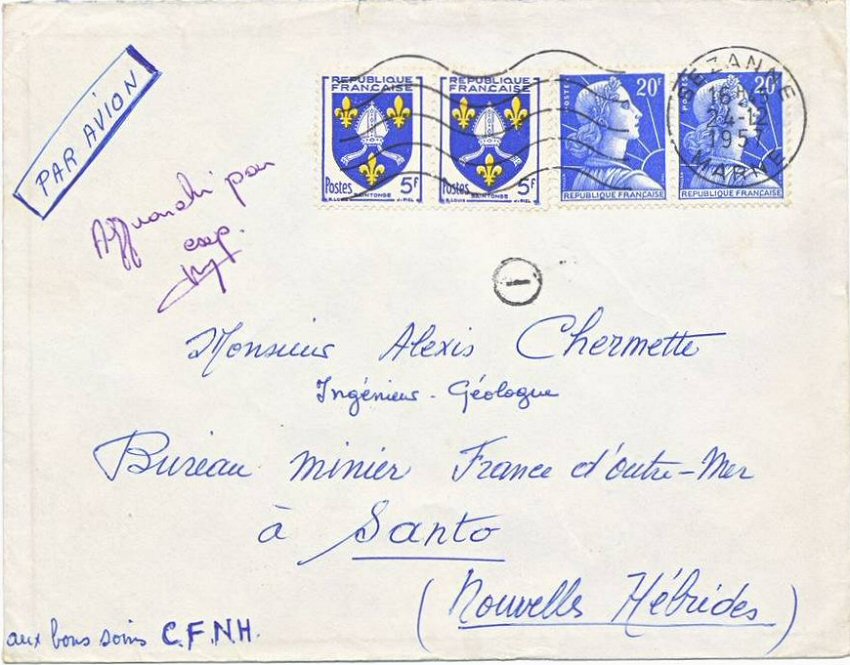 PAR AVION
REPUBLIQUE FRANÇAISE
Postes 5F
SAINTONGE
REPUBLIQUE FRANÇAISE
Postes 5F
SAINTONGE
POSTES 20F
REPUBLIQUE FRANÇAISE
POSTES 20F
REPUBLIQUE FRANÇAISE
SEZANNE
24-12
1957
MARNE
Affranchi par
I
Monsieur Alexis Chermette
Ingénieur-Géologue
Bureau minier France d'outre-Mer
à Santo
(Nouvelles Hébrides)
aux bons soins C.F.N.H.